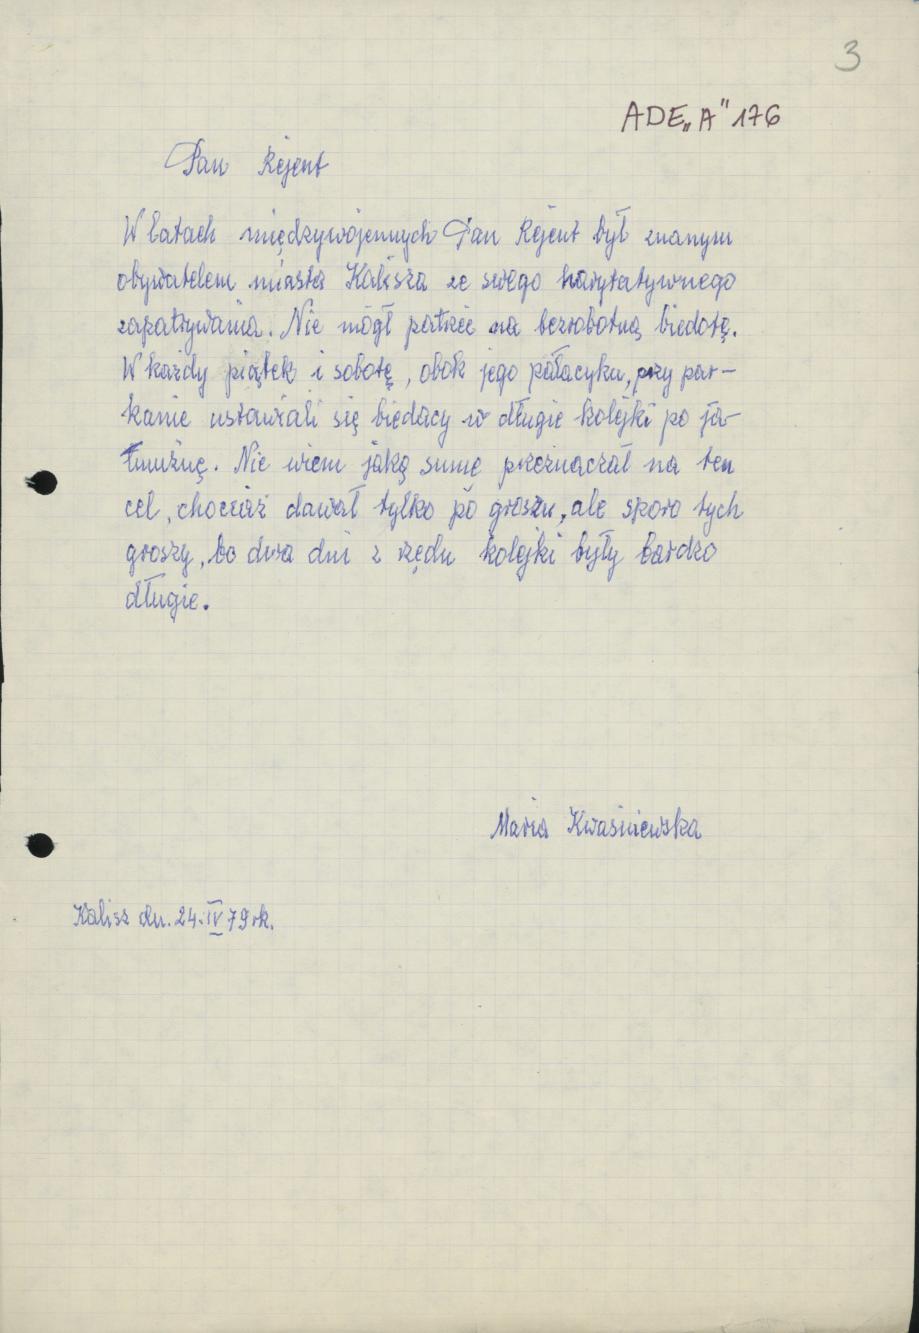 3
ADE „A" 176
Pan Rejent
W latach międzywojennych Pan Rejent był znanym
obywatelem miasta Kalisza ze swego harytatywnego
zapatrywania. Nie mógł patrzeć na bezrobotną biedotę.
W każdy piątek i sobotę, obok jego pałacyku, przy par-
kanie ustawiali się biedacy w długie kolejki po ja-
łmużnę. Nie wiem jaką sumę przeznaczał na ten
cel, chociaż dawał tylko po groszu, ale sporo tych
groszy, bo dwa dni z rzędu kolejki były bardzo
długie.
Maria Kwaśniewska
Kalisz dn. 24.IV 79 rk.